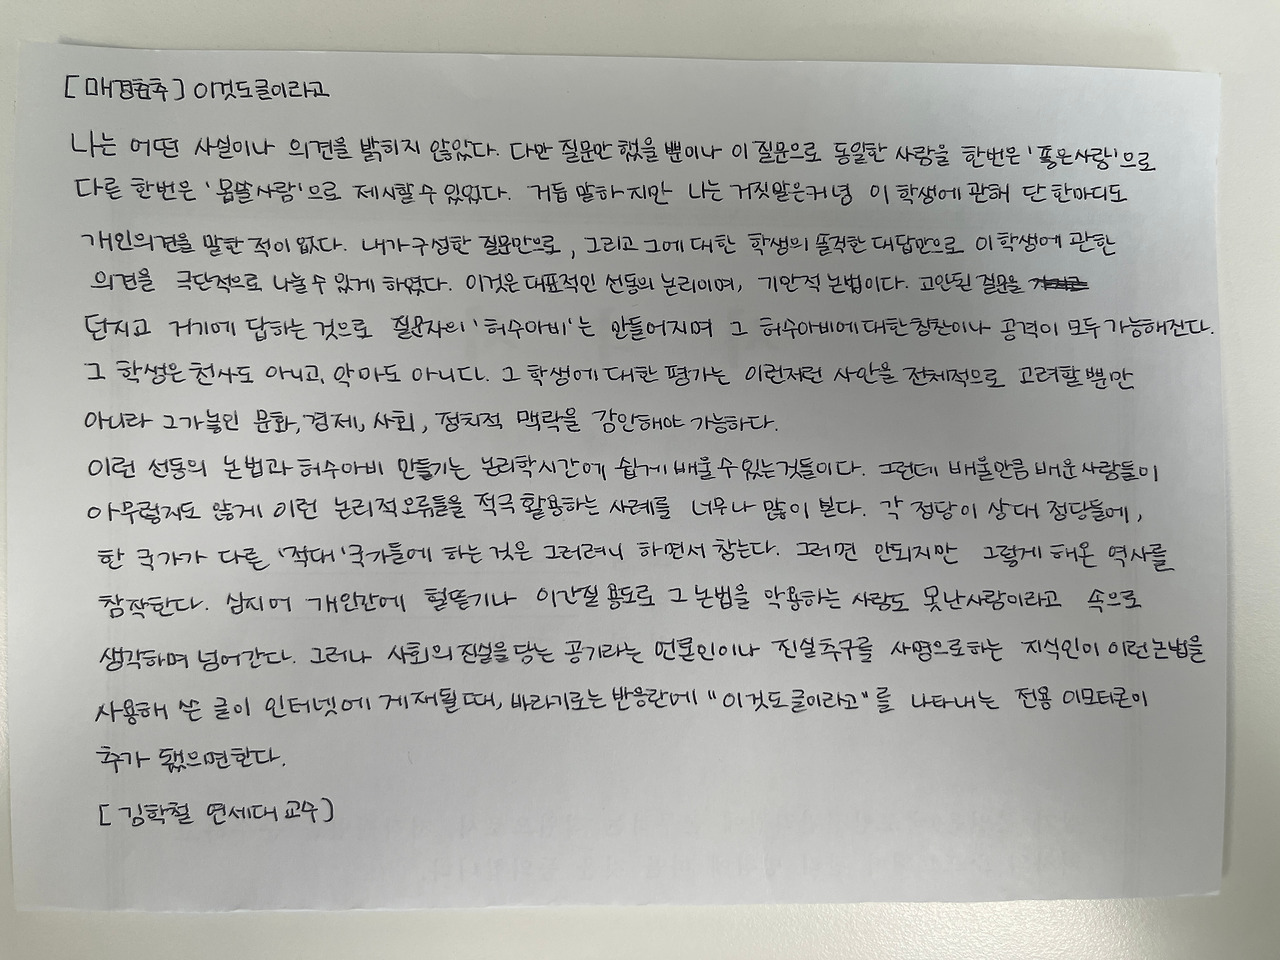 [매경춘추] 이것도글이라고
나는 어떤 사실이나 의견을 밝히지 않았다. 다만 질문만 했을 뿐이나 이 질문으로 동일한 사람을 한번은 '좋은사람'으로
다른 한번은 '몹쓸사람'으로 제시할 수 있었다. 거듭 말하지만 나는 거짓말은커녕 이 학생에 관해 단 한마디도
개인의견을 말한 적이 없다. 내가구성한 질문만으로, 그리고 그에 대한 학생의 똑적한 대답만으로 이 학생에 관한
의견을 극단적으로 나눌 수 있게 하였다. 이것은 대표적인 선동의 논리이며, 기만적 논법이다. 고안된 질문을
던지고 거기에 답하는 것으로 질문자의 '허수아비'는 만들어지며 그 허수아비에 대한 칭찬이나 공격이 모두 가능해진다.
그 학생은 천사도 아니고, 악마도 아니다. 그 학생에 대한 평가는 이런저런 사안을 전체적으로 고려할 뿐만
아니라 그가 놓인 문화, 경제, 사회, 정치적 맥락을 감안해야 가능하다.
이런 선동의 논법과 허수아비 만들기는 논리학시간에 쉽게 배울 수 있는 것들이다. 그런데 배울만큼 배운 사람들이
아무렇지도 않게 이런 논리적 오류들을 적극 활용하는 사례를 너무나 많이 본다. 각 정당이 상대 정당들에,
한 국가가 다른 '적대' 국가들에 하는 것은 그러려니 하면서 참는다. 그러면 안되지만 그렇게 해온 역사를
참작한다. 심지어 개인간에 헐뜯기나 이간질 용도로 그 논법을 악용하는 사람도 못난사람이라고 속으로
생각하며 넘어간다. 그러나 사회의 진실을 담는 공기라는 언론인이나 진실추구를 사명으로하는 지식인이 이런논법을
사용해 쓴 글이 인터넷에 게재될 때, 바라기로는 반응란에 "이것도 글이라고"를 나타내는 전용 이모티콘이
추가 됐으면한다.
[김학철 연세대 교수]